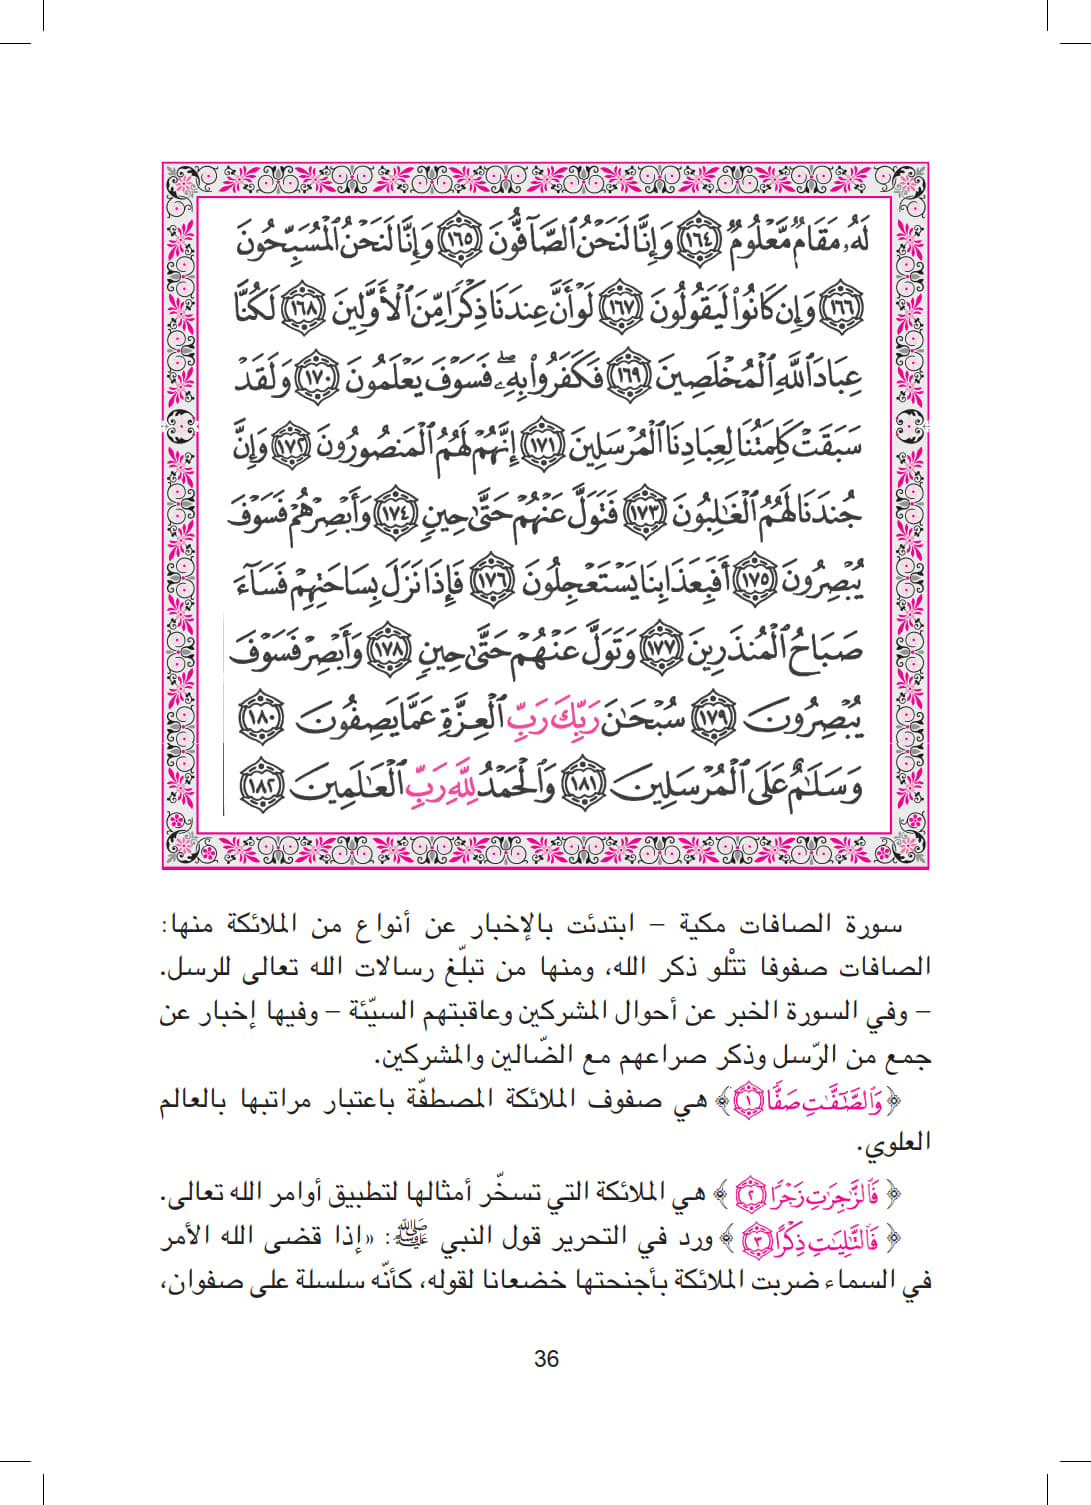 لَهُۥ مَقَامٌ مَّعْلُومٌ ١٦٤ وَإِنَّا لَنَحْنُ ٱلصَّآفُّونَ ١٦٥ وَإِنَّا لَنَحْنُ ٱلْمُسَبِّحُونَ
١٦٦ وَإِن كَانُوا۟ لَيَقُولُونَ ١٦٧ لَوْ أَنَّ عِندَنَا ذِكْرًا مِّنَ ٱلْأَوَّلِينَ ١٦٨ لَكُنَّا
عِبَادَ ٱللَّهِ ٱلْمُخْلَصِينَ ١٦٩ فَكَفَرُوا۟ بِهِۦ ۖ فَسَوْفَ يَعْلَمُونَ ١٧٠ وَلَقَدْ
سَبَقَتْ كَلِمَتُنَا لِعِبَادِنَا ٱلْمُرْسَلِينَ ١٧١ إِنَّهُمْ لَهُمُ ٱلْمَنصُورُونَ ١٧٢ وَإِنَّ
جُندَنَا لَهُمُ ٱلْغَٰلِبُونَ ١٧٣ فَتَوَلَّ عَنْهُمْ حَتَّىٰ حِينٍ ١٧٤ وَأَبْصِرْهُمْ فَسَوْفَ
يُبْصِرُونَ ١٧٥ أَفَبِعَذَابِنَا يَسْتَعْجِلُونَ ١٧٦ فَإِذَا نَزَلَ بِسَاحَتِهِمْ فَسَآءَ
صَبَاحُ ٱلْمُنذَرِينَ ١٧٧ وَتَوَلَّ عَنْهُمْ حَتَّىٰ حِينٍ ١٧٨ وَأَبْصِرْ فَسَوْفَ
يُبْصِرُونَ ١٧٩ سُبْحَٰنَ رَبِّكَ رَبِّ ٱلْعِزَّةِ عَمَّا يَصِفُونَ ١٨٠
وَسَلَٰمٌ عَلَى ٱلْمُرْسَلِينَ ١٨١ وَٱلْحَمْدُ لِلَّهِ رَبِّ ٱلْعَٰلَمِينَ ١٨٢
سورة الصافات مكية – ابتدئت بالإخبار عن أنواع من الملائكة منها:
الصافات صفوفا تتْلو ذكر الله، ومنها من تبلّغ رسالات الله تعالى للرسل.
– وفي السورة الخبر عن أحوال المشركين وعاقبتهم السيّئة – وفيها إخبار عن
جمع من الرّسل وذكر صراعهم مع الضّالين والمشركين.
﴿وَٱلصَّٰٓفَّٰتِ صَفًّا ١﴾ هي صفوف الملائكة المصطفّة باعتبار مراتبها بالعالم
العلوي.
﴿فَٱلزَّٰجِرَٰتِ زَجْرًا ٢﴾ هي الملائكة التي تسخّر أمثالها لتطبيق أوامر الله تعالى.
﴿فَٱلتَّٰلِيَٰتِ ذِكْرًا ٣﴾ ورد في التحرير قول النبي ﷺ: «إذا قضى الله الأمر
في السماء ضربت الملائكة بأجنحتها خضعانا لقوله، كأنّه سلسلة على صفوان،
36